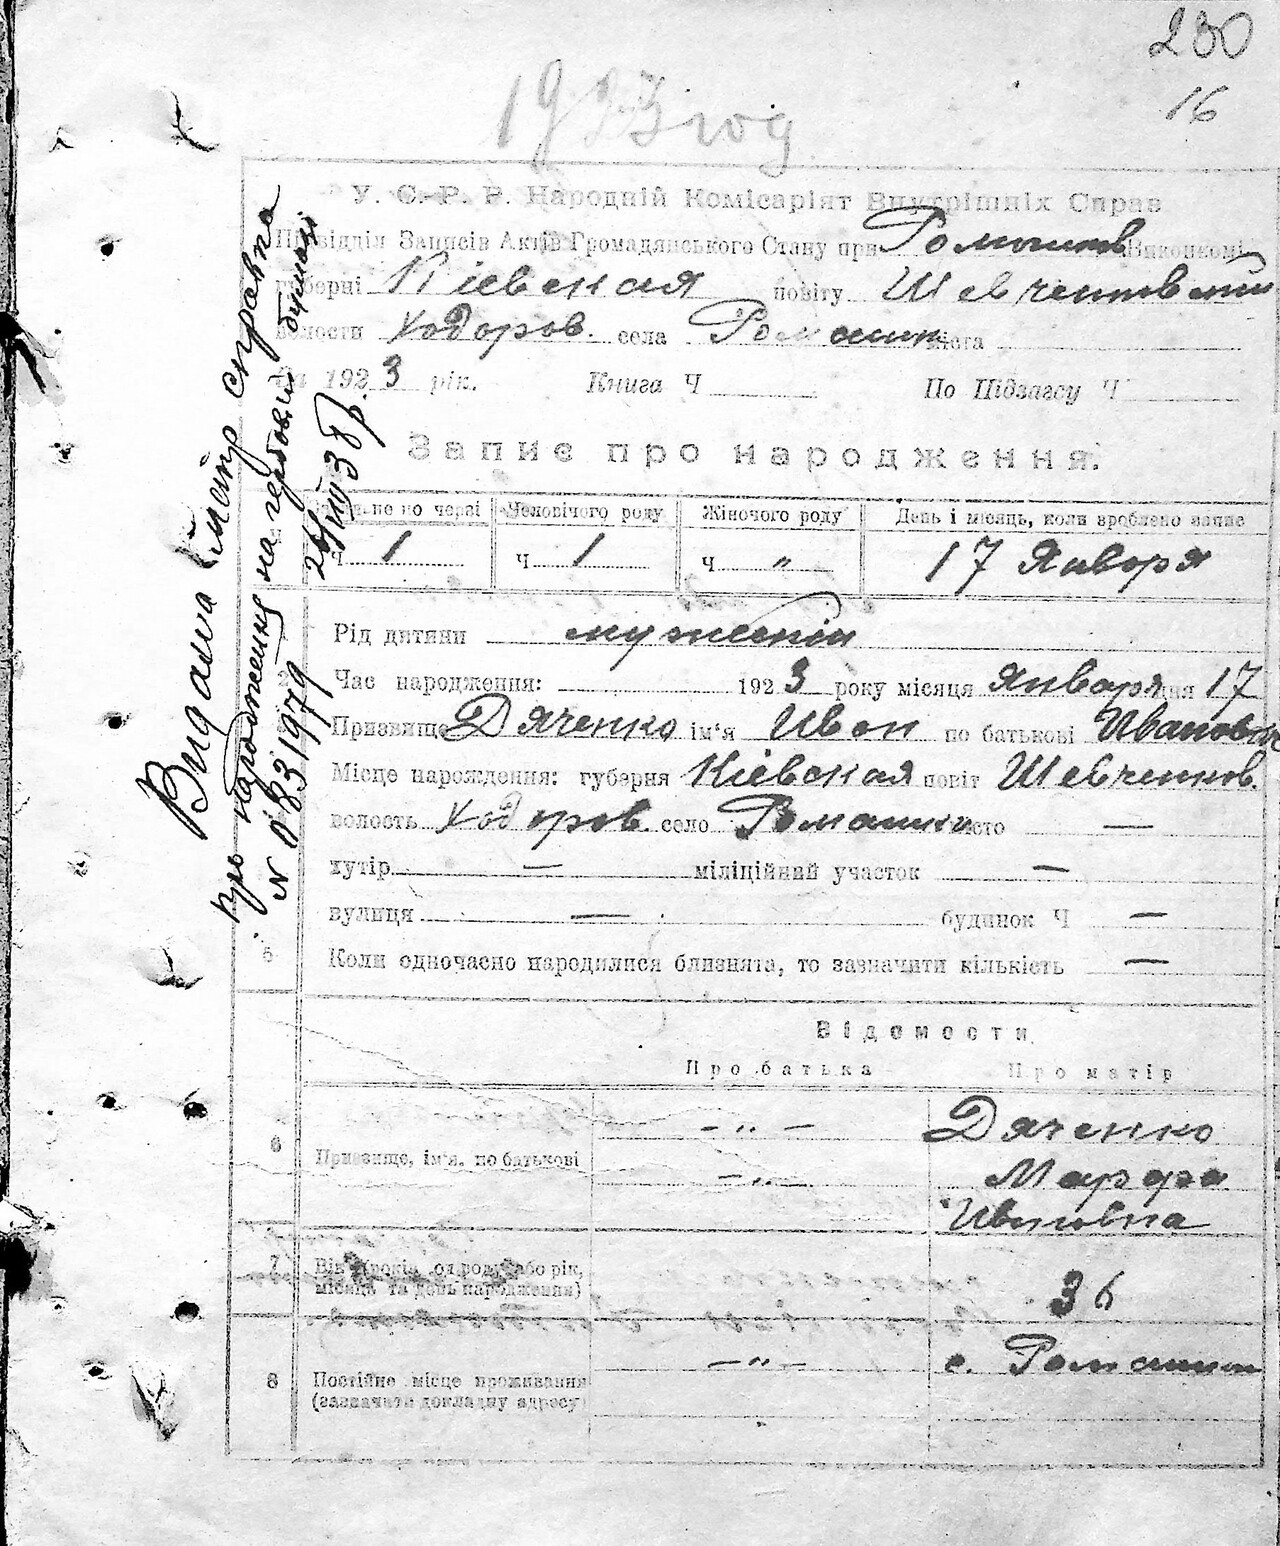 230
16
1923 год
У. С. Р. Р. Народній Комісаріят Внутрішніх Справ
Підвідділ Записів Актів Громадянського Стану при Ромашков Виконкомі
губерні Кіевская повіту Шевченковский
волости Ходоров. села Ромашки міста
За 1923 рік. Книга Ч По Підзагсу Ч
Запис про народження.
Загальне по черзі Человічого роду Жіночого роду День і місяць, коли зроблено запис
Ч 1 Ч 1 Ч „ 17 Января
Рід дитяни мужескій
2 Час народження: 1923 року місяця Января дня 17
Призвище Дяченко ім'я Иван по батькові Иванович
Місце нарождення: губерня Кіевская повіт Шевченков.
волость Ходоров село Ромашки місто —
хутір — міліційний участок —
вулиця — будинок Ч —
5 Коли одночасно народилися близнята, то зазначити кількість —
Відомости
Про батька Про матір
6 Призвище, ім'я, по батькові —„— Дяченко
—„— Марфа
Ивановна
7 Вік (років од роду або рік, місяць та день народження) 36
8 Постійне місце проживання —„— с. Ромашки
(зазначити докладну адресу)
Видана метр справка
про народження на гербовій бумазі
N 0831979 24/VIII 38 р.